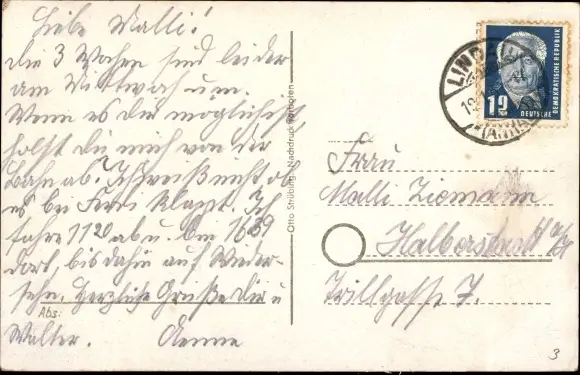 Liebe Malli!
die 3 Wochen sind leider
am Mittwoch um.
Wenn es dir möglich ist,
holst du mich von der
Bahn ab? Ich weiß nicht ob
es bei Ferri klappt. Ich
fahre 1120 ab u. bin 1659
dort, bis dahin auf Wieder-
sehn. Herzliche Grüße Dir u
Walter. Aenne
Abs:
Otto Strübing Nachdruck verboten
12
DEUTSCHE
DEMOKRATISCHE REPUBLIK
Frau
Malli Ziemann
Halberstadt a/H
Trillgasse 7.
3